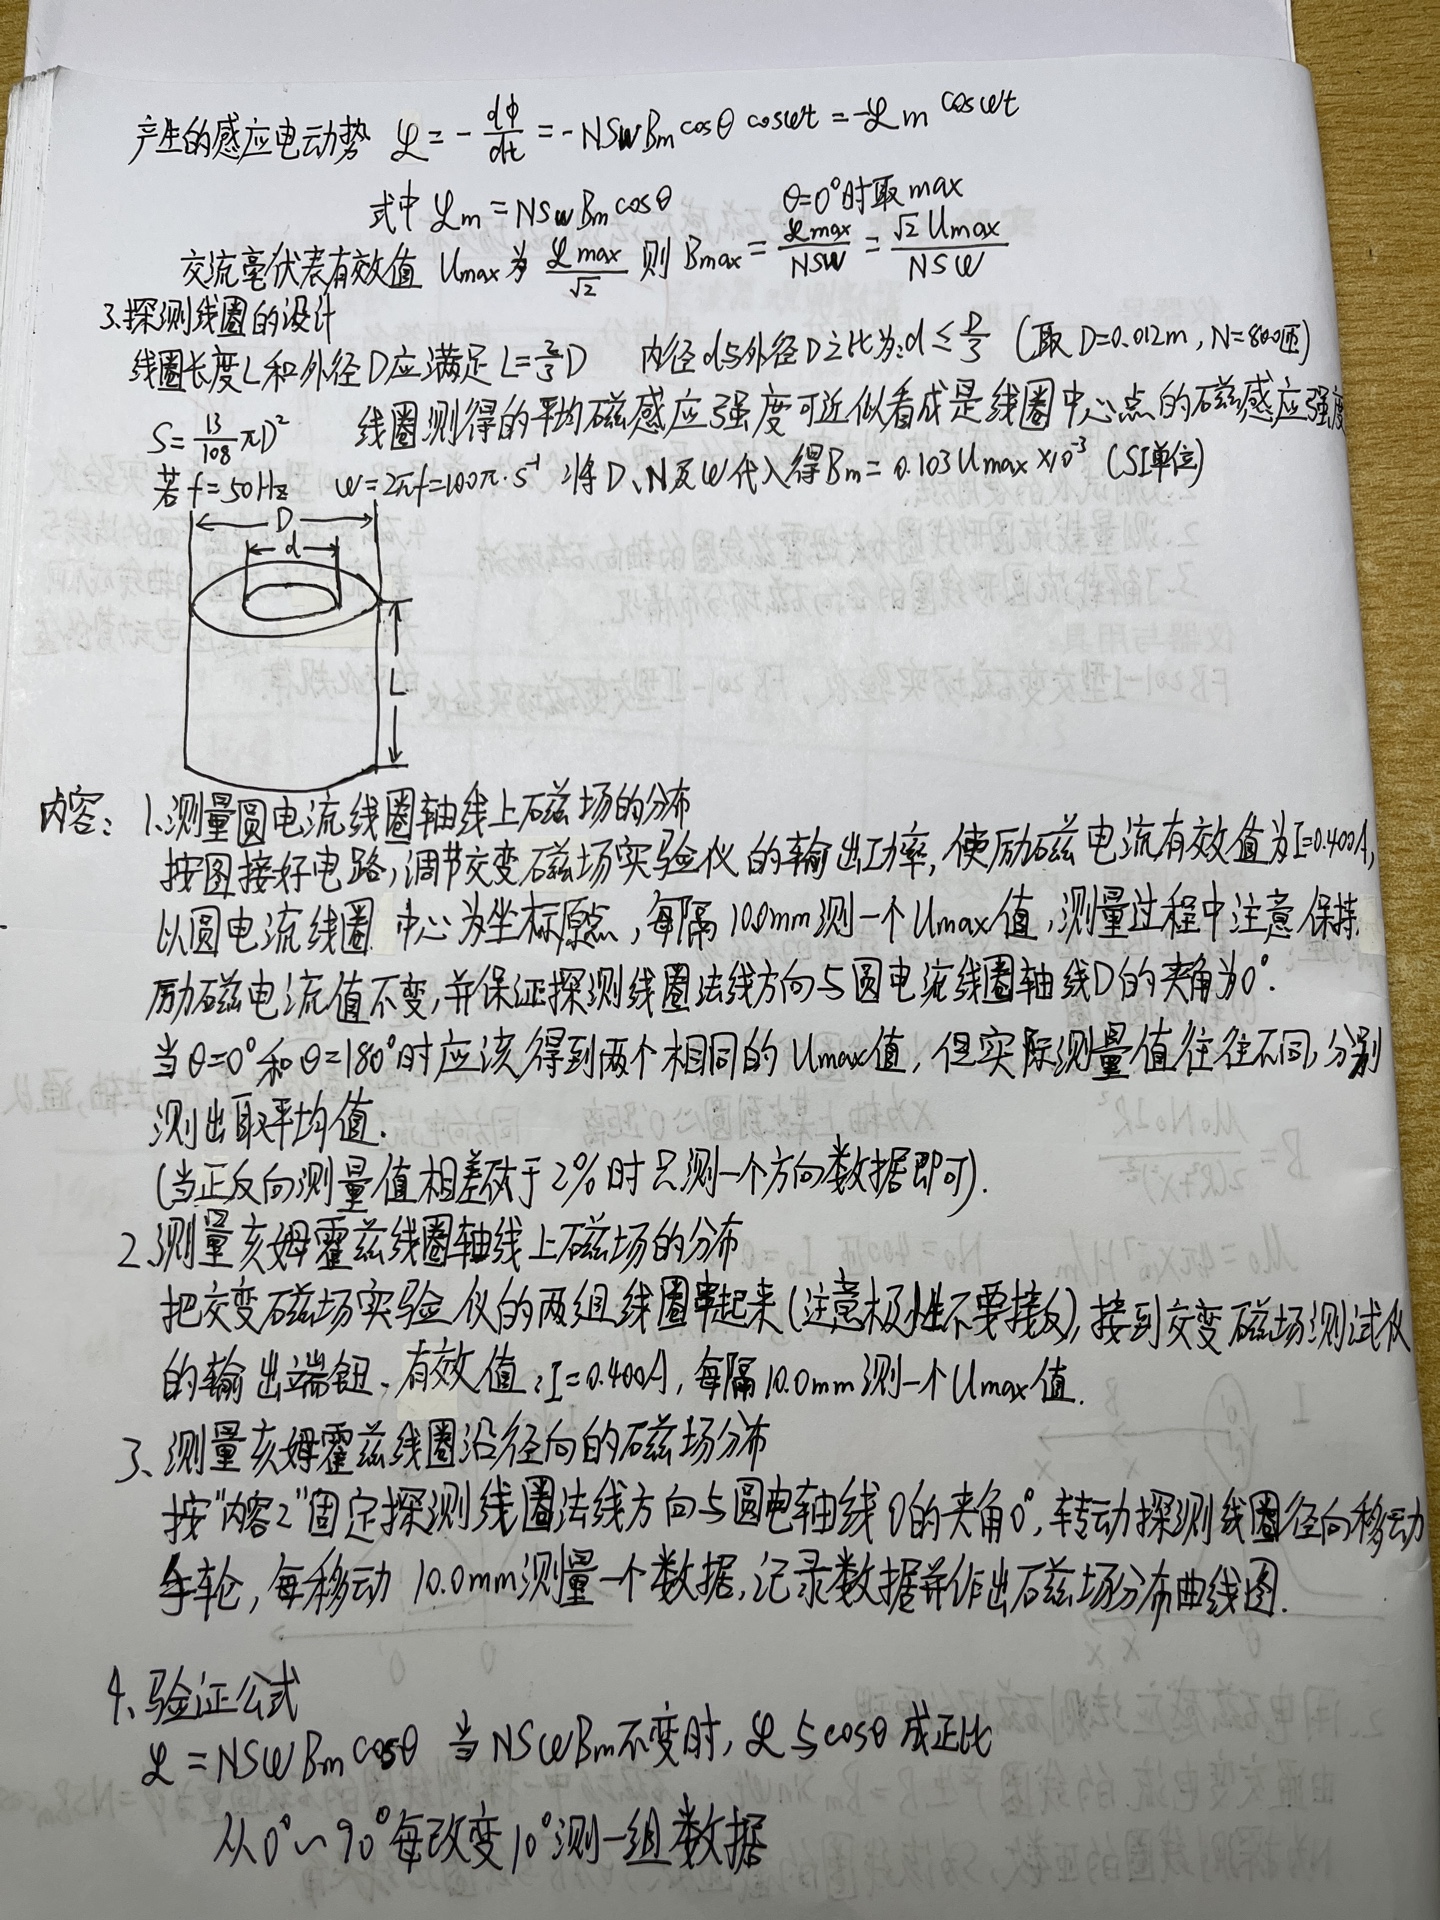 产生的感应电动势 ℰ = -dΦ/dt = -NSωBm cosθ cosωt = -ℰm cosωt
式中 ℰm = NSωBm cosθ θ=0°时取max
交流毫伏表有效值 Umax 为 ℰmax/√2 则 Bmax = ℰmax/NSω = √2 Umax/NSω
3.探测线圈的设计
线圈长度L和外径D应满足 L=2/3D 内径d与外径D之比为:d ≤ D/3 (取D=0.012m, N=800匝)
S=13/108 πD² 线圈测得的平均磁感应强度可近似看成是线圈中心点的磁感应强度
若f=50Hz ω=2πf=100π·s⁻¹ 将D、N及ω代入得Bm=0.103Umax×10⁻³ (SI单位)
D
d
L
内容: 1.测量圆电流线圈轴线上磁场的分布
按图接好电路,调节交变磁场实验仪的输出功率,使励磁电流有效值为I=0.400A,
以圆电流线圈中心为坐标原点,每隔10.0mm测一个Umax值,测量过程中注意保持
励磁电流值不变,并保证探测线圈法线方向与圆电流线圈轴线D的夹角为0°.
当θ=0°和θ=180°时应该得到两个相同的Umax值,但实际测量值往往不同,分别
测出取平均值.
(当正反向测量值相差小于2%时只测一个方向数据即可).
2、测量亥姆霍兹线圈轴线上磁场的分布
把交变磁场实验仪的两组线圈串起来(注意极性不要接反),接到交变磁场测试仪
的输出端钮、有效值:I=0.400A,每隔10.0mm测一个Umax值.
3、测量亥姆霍兹线圈沿径向的磁场分布
按"内容2"固定探测线圈法线方向与圆电轴线D的夹角0°,转动探测线圈径向移动
手轮,每移动10.0mm测量一个数据,记录数据并作出磁场分布曲线图.
4、验证公式
ℰ=NSωBm cosθ 当NSωBm不变时,ℰ与cosθ成正比
从0°~90°每改变10°测一组数据